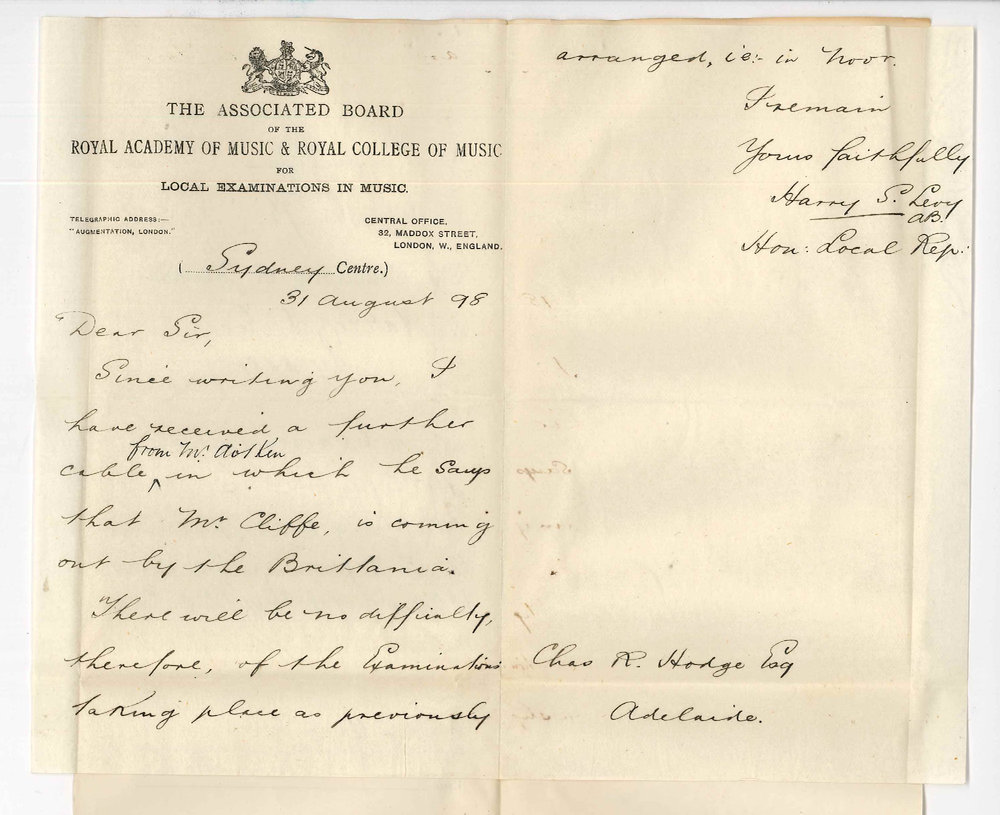 THE ASSOCIATED BOARD
OF THE
ROYAL ACADEMY OF MUSIC & ROYAL COLLEGE OF MUSIC
FOR
LOCAL EXAMINATIONS IN MUSIC.
TELEGRAPHIC ADDRESS:—
"AUGMENTATION, LONDON."
CENTRAL OFFICE,
32, MADDOX STREET,
LONDON, W., ENGLAND.
(Sydney Centre.)
31 August 98
Dear Sir,
Since writing you, I
have received a further
from Mr Aitken
cable in which he says
that Mr Cliffe, is coming
out by the Brittania.
There will be no difficulty,
therefore, of the Examinations
taking place as previously
arranged, ie:- in Novr.
I remain
Yours faithfully
Harry S. Levy
AB.
Hon: Local Rep:
Chas R. Hodge Esq
Adelaide.